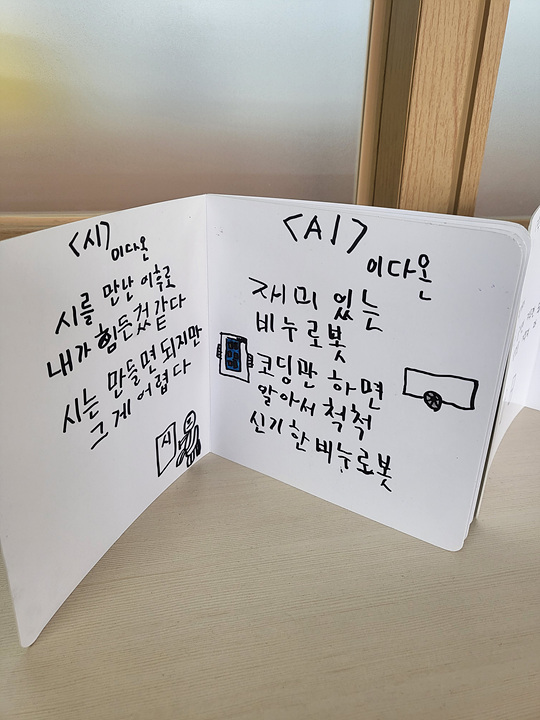 <시>
이다온
시를 만난 이후로
내가 힘든것 같다
시는 만들면 되지만
그게 어렵다
시
<AI>
이다온
재미 있는
비누로봇
코딩만 하면
알아서 척척
신기한 비누로봇